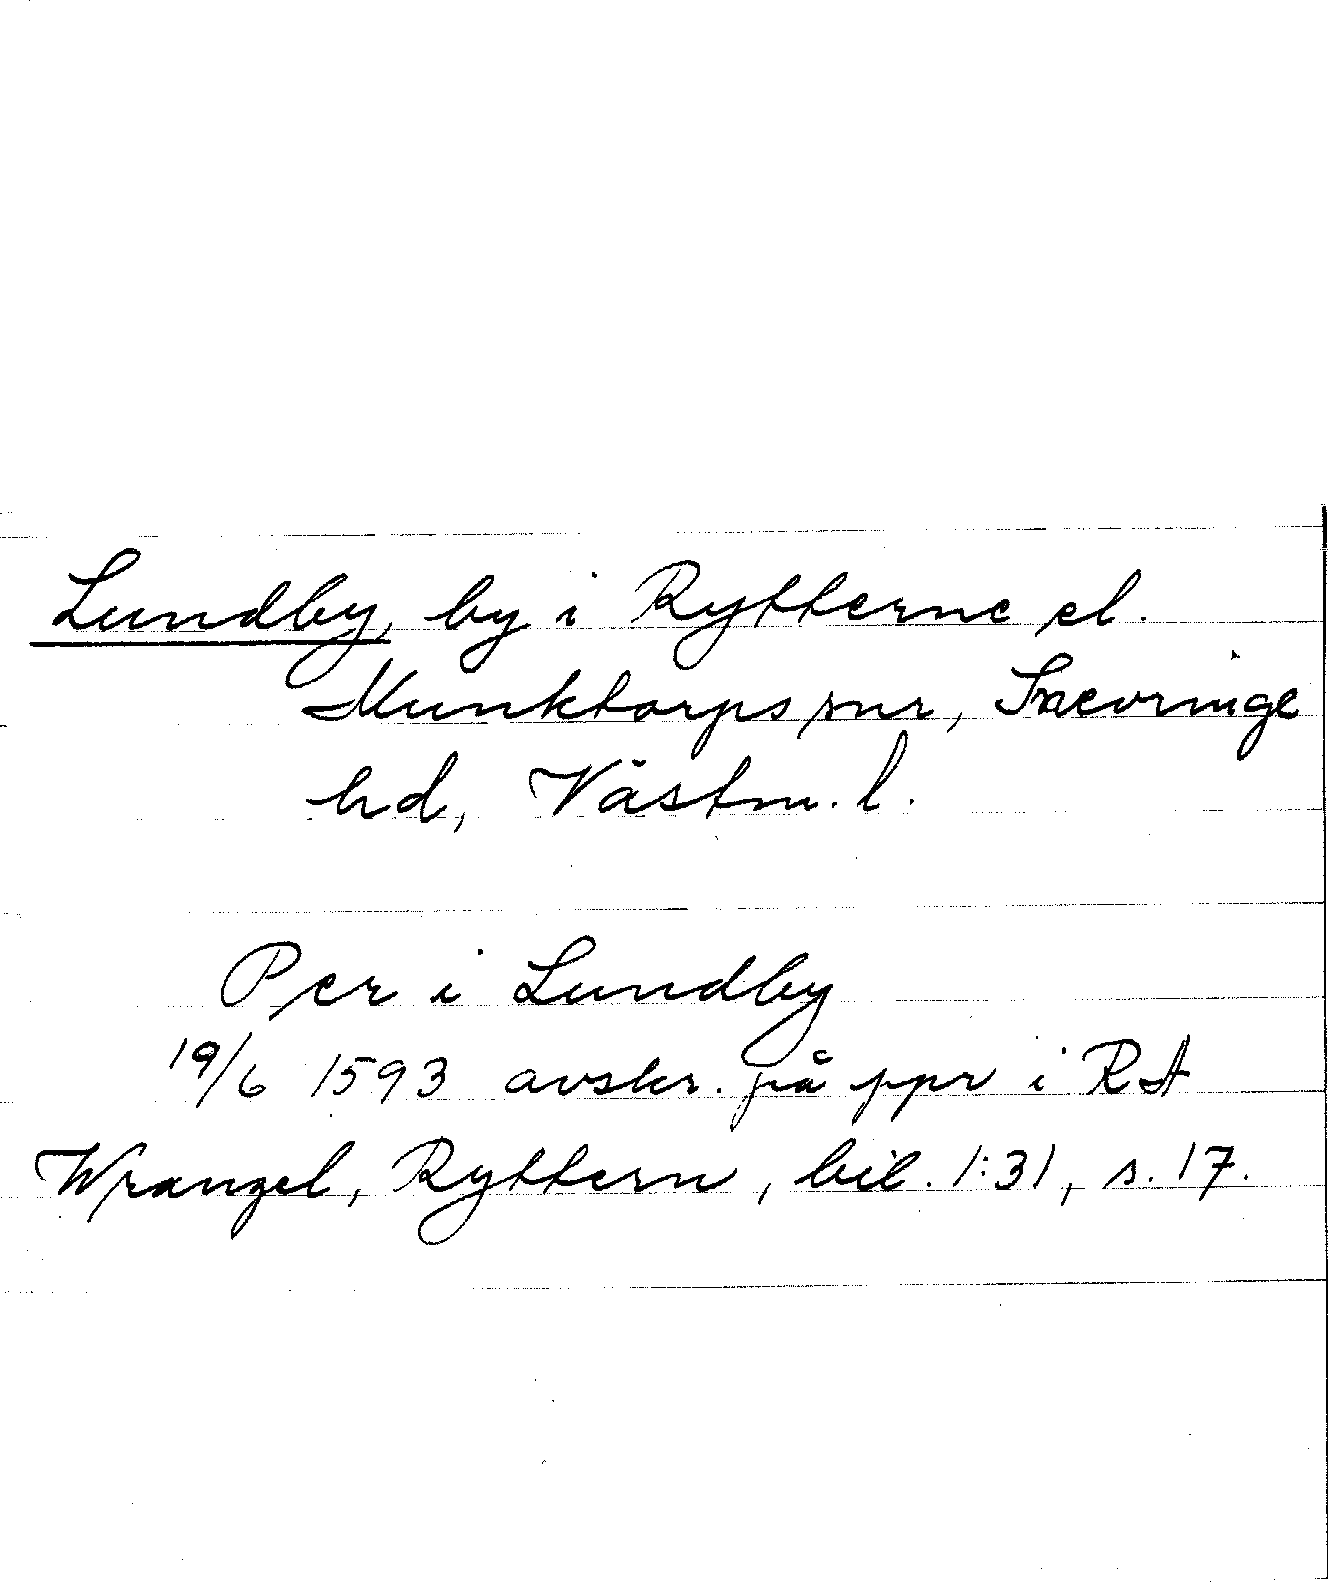 Lundby, by i Rytterne el.
Munktorps snr, Snevringe
hd, Västm. l.
Per i Lundby
19/6 1593 avskr. på ppr i RA
Wrangel, Ryttern, bil. 1:31, s. 17.